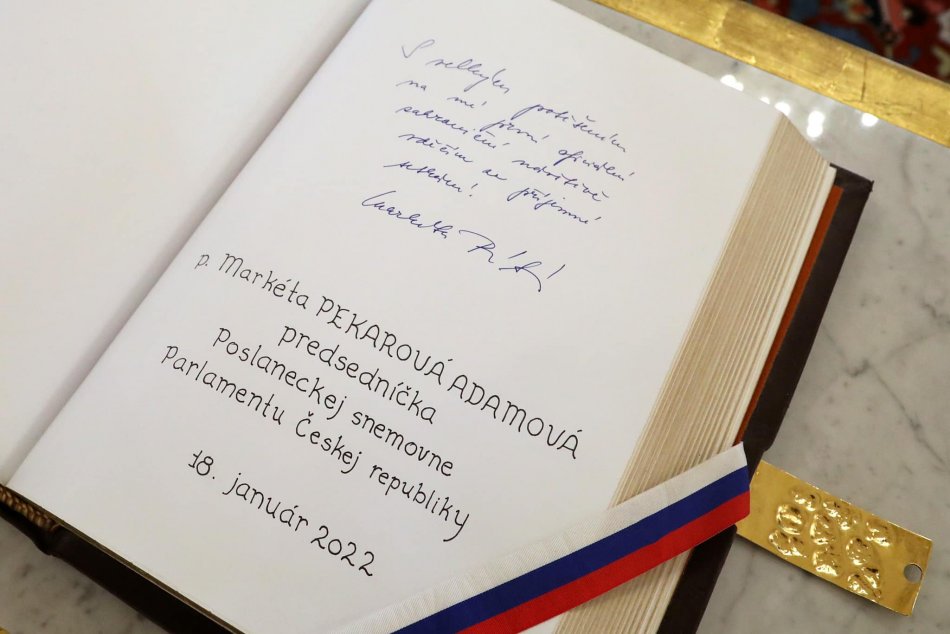 S velkým potěšením
na mé první oficiální
zahraniční návštěvě
vděčím za příjemné
setkání!
Markéta
p. Markéta PEKAROVÁ ADAMOVÁ
predsedníčka
Poslaneckej snemovne
Parlamentu Českej republiky
18. január 2022